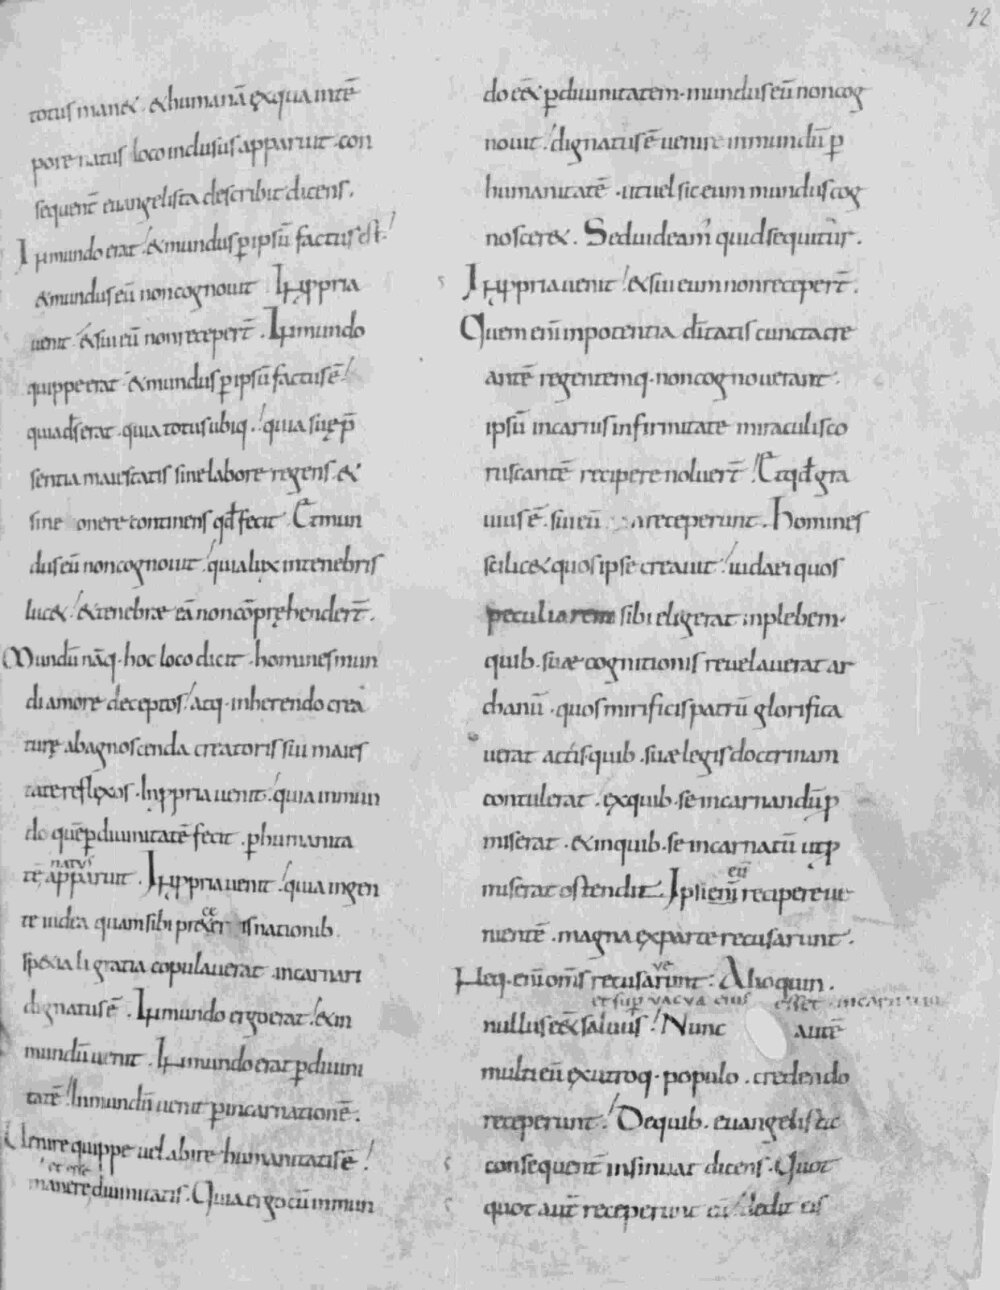 32
totus manet. & humanā ex qua in tē
pore natus loco inclusus apparuit. con
sequenť euangelista describit dicens.
In mundo erat / & mundus p ipsū factus est /
& mundus eū non cognouit In ppria
uenit / & sui eū non recepert̄. In mundo
quippe erat & mundus p ipsū factus ē /
quia ds̄ erat. quia totus ubiq. / quia suę p̄
sentia maiestatis sine labore regens &
sine onere continens qđ fecit. Et mun
dus eū non cognouit / quia lux in tenebris
lucet / & tenebrae eā non cōpręhendert̄.
Mundū nāq. hoc loco dicit. homines mun
di amore deceptos / atq. inherendo crea
turę ab agnoscenda creatoris sui maies
tate reflexos. In ppria uenit. / quia in mun
do quē p diuinitatē fecit. p humanita
natus
tē apparuit. In ppria uenit / quia in gen
te iudea quam sibi prę ceteris nationib.
speciali gratia copulauerat incarnari
dignatus ē. In mundo ergo erat / & in
mundū uenit. In mundo erat p diuini
tatē / In mundū uenit p incarnationē.
Uenire quippe uel abire humanitatis ē /
et esse
manere diuinitatis. Quia ergo cū in mun
do eēt p diuinitatem. mundus eū non cog
nouit / dignatus ē uenire in mundū p
humanitatē. ut uel sic eum mundus cog
nosceret. Sed uideam' quid sequitur.
In ppria uenit / & sui eum non recepert̄.
Quem enī in potentia diītatis cuncta cre
antē regentemq. non cognouerant.
ipsū in carnis infirmitate miraculis co
ruscantē recipere noluert̄ / Et qđ gra
uius ē. sui eū receperunt. Homines
scilicet quos ipse creauit / iudaei quos
peculiarem sibi eligerat in plebem.
quib. suae cognitionis reuelauerat ar
chanū. quos mirificis patrū glorifica
uerat actis quib. suae legis doctrinam
contulerat. ex quib. se incarnandū p
miserat. & in quib. se incarnatū ut p
miserat ostendit. Ipsi enī eū recipere ue
nientē. magna ex parte recusarunt.
Neq. enī om̄s recusaverunt. Alioquin.
et sup vacua eius esset incarnatio
nullus eēt saluus / Nunc autē
multi eū ex utroq. populo. credendo
receperunt / De quib. euangelista
consequenť insinuat dicens. Quot
quot auť receperunt eū / dedit eis